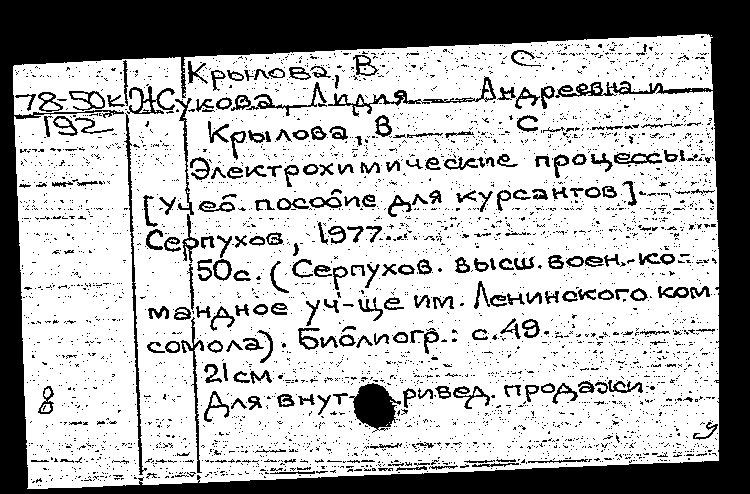 Крылова, В С
78-50к Жукова, Лидия Андреевна и
192 Крылова, В С
Электрохимические процессы
[Учеб. пособие для курсантов].
Серпухов, 1977.
50с. (Серпухов. высш. воен.-ко-
мандное уч-ще им. Ленинского ком-
сомола). Библиогр.: с.49.
21см.
8 Для внут ривед. продажи.